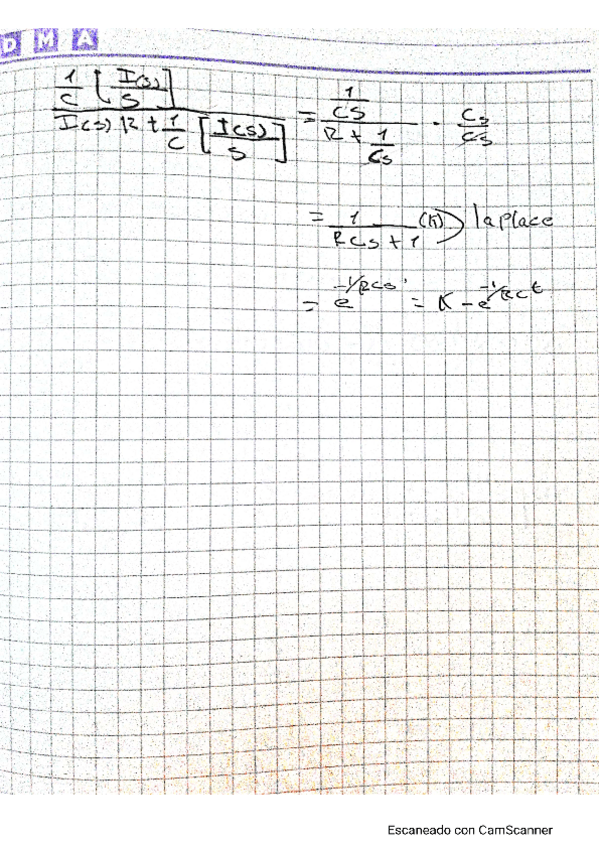 D M A
1/C [I(s)/S] / I(s) R + 1/C [I(s)/S] = 1/CS / R + 1/Cs · Cs/Cs
= 1/RCs + 1 (K) laplace
= e^-1/RCs = K - e^-1/RC t
Escaneado con CamScanner